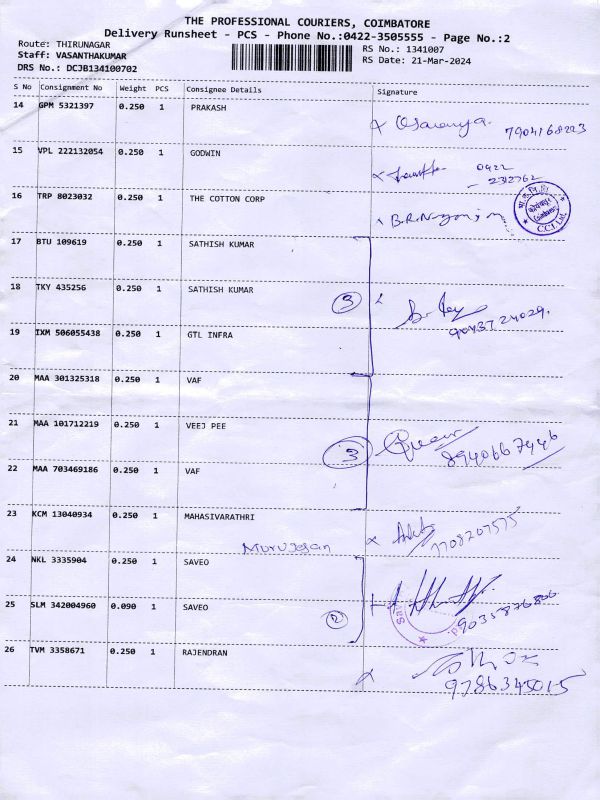 THE PROFESSIONAL COURIERS, COIMBATORE
Delivery Runsheet - PCS - Phone No.:0422-3505555 - Page No.:2
Route: THIRUNAGAR
RS No.: 1341007
Staff: VASANTHAKUMAR
RS Date: 21-Mar-2024
DRS No.: DCJB134100702
S No Consignment No Weight PCS Consignee Details Signature
14 GPM 5321397 0.250 1 PRAKASH
15 VPL 222132054 0.250 1 GODWIN
0422
16 TRP 8023032 0.250 1 THE COTTON CORP
17 BTU 109619 0.250 1 SATHISH KUMAR
18 TKY 435256 0.250 1 SATHISH KUMAR
3
9043724029.
19 IXM 506055438 0.250 1 GTL INFRA
20 MAA 301325318 0.250 1 VAF
21 MAA 101712219 0.250 1 VEEJ PEE
3
8940667446
22 MAA 703469186 0.250 1 VAF
23 KCM 13040934 0.250 1 MAHASIVARATHRI
Murugesan
7708207575
24 NKL 3335904 0.250 1 SAVEO
25 SLM 342004960 0.090 1 SAVEO
2
9035876806
26 TVM 3358671 0.250 1 RAJENDRAN
9786345015